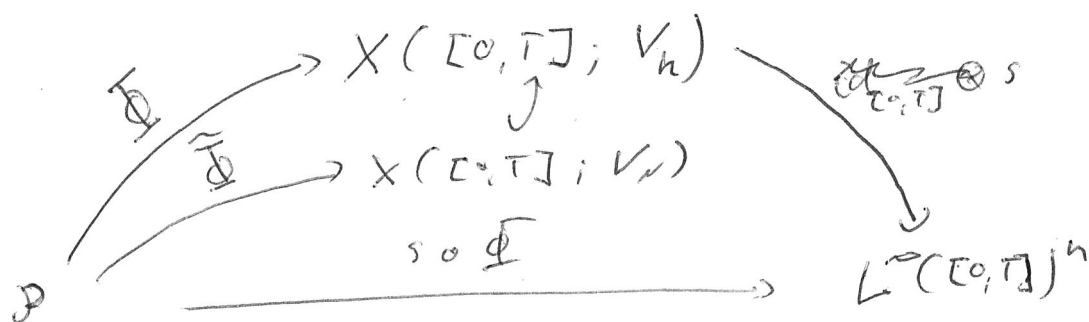 X([0,T]; V_h)
Φ
[0,T] s
Φ̃
X([0,T]; V_N)
s ∘ Φ
P
L^∞([0,T])^n